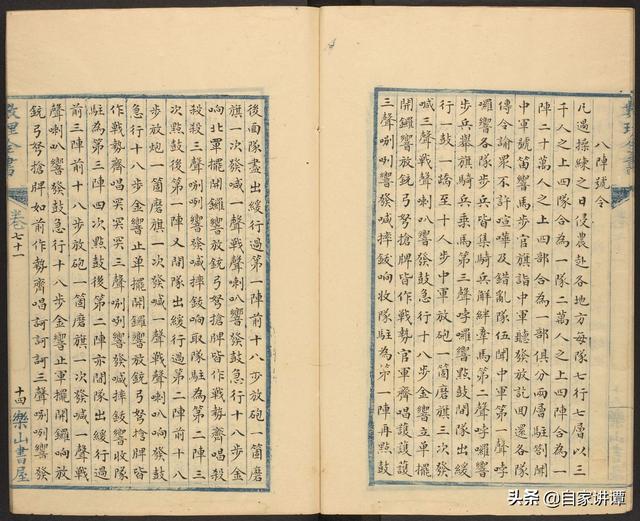 八陣號令
凡過操練之日侵農赴各地方每隊七行七層以三
千人之上四隊合為一隊二萬人之上四陣合為一
陣二十萬人之上四部合為一部俱分兩層駐劄聞
中軍號笛響馬步官旗詣中軍聽發放訖回還各隊
傳令諭眾不許喧嘩及錯亂隊伍聞中軍第一聲哱
囉響各隊步兵皆集騎兵解絆牽馬第二聲哱囉響
步兵舉旗騎兵乘馬第三聲哱囉響
行一鼓一至十人步中軍放砲一箇磨旗三次發
喊三聲喇叭響發鼓急行十八步金響立單擺
開鑼響放銃弓弩搶牌皆作戰勢官軍齊唱護護護
三聲唎唎響發喊摔鈸响收隊駐為第一陣再點鼓
後面隊盡出緩行過第一陣前十八步放砲一箇磨
旗一次發喊一聲戰聲喇叭響發鼓急行十八步金
响北單擺開鑼響放銃弓弩搶牌皆作戰勢齊唱殺
殺殺三聲唎唎響發喊摔鈸响取隊駐為第二陣三
次點鼓後第一陣又開隊出緩行過第二陣前十八
步放砲一箇磨旗一次發喊一聲戰聲喇叭響發鼓
急行十八步金響止單擺開鑼響放銃弓弩搶牌皆
作戰勢齊唱哭哭哭三聲唎唎響發喊摔鈸響收隊
駐為第三陣四次點鼓後第二陣亦開隊出緩行過
前三陣前十八步放砲一箇磨旗一次發喊一聲戰
聲喇叭響發鼓急行十八步金響止軍擺開鑼响放
銃弓弩搶牌如前作勢齊唱訶訶訶三聲唎唎響發
數理全書
卷七十一
十四
樂山書屋
头条 @自家讲谭